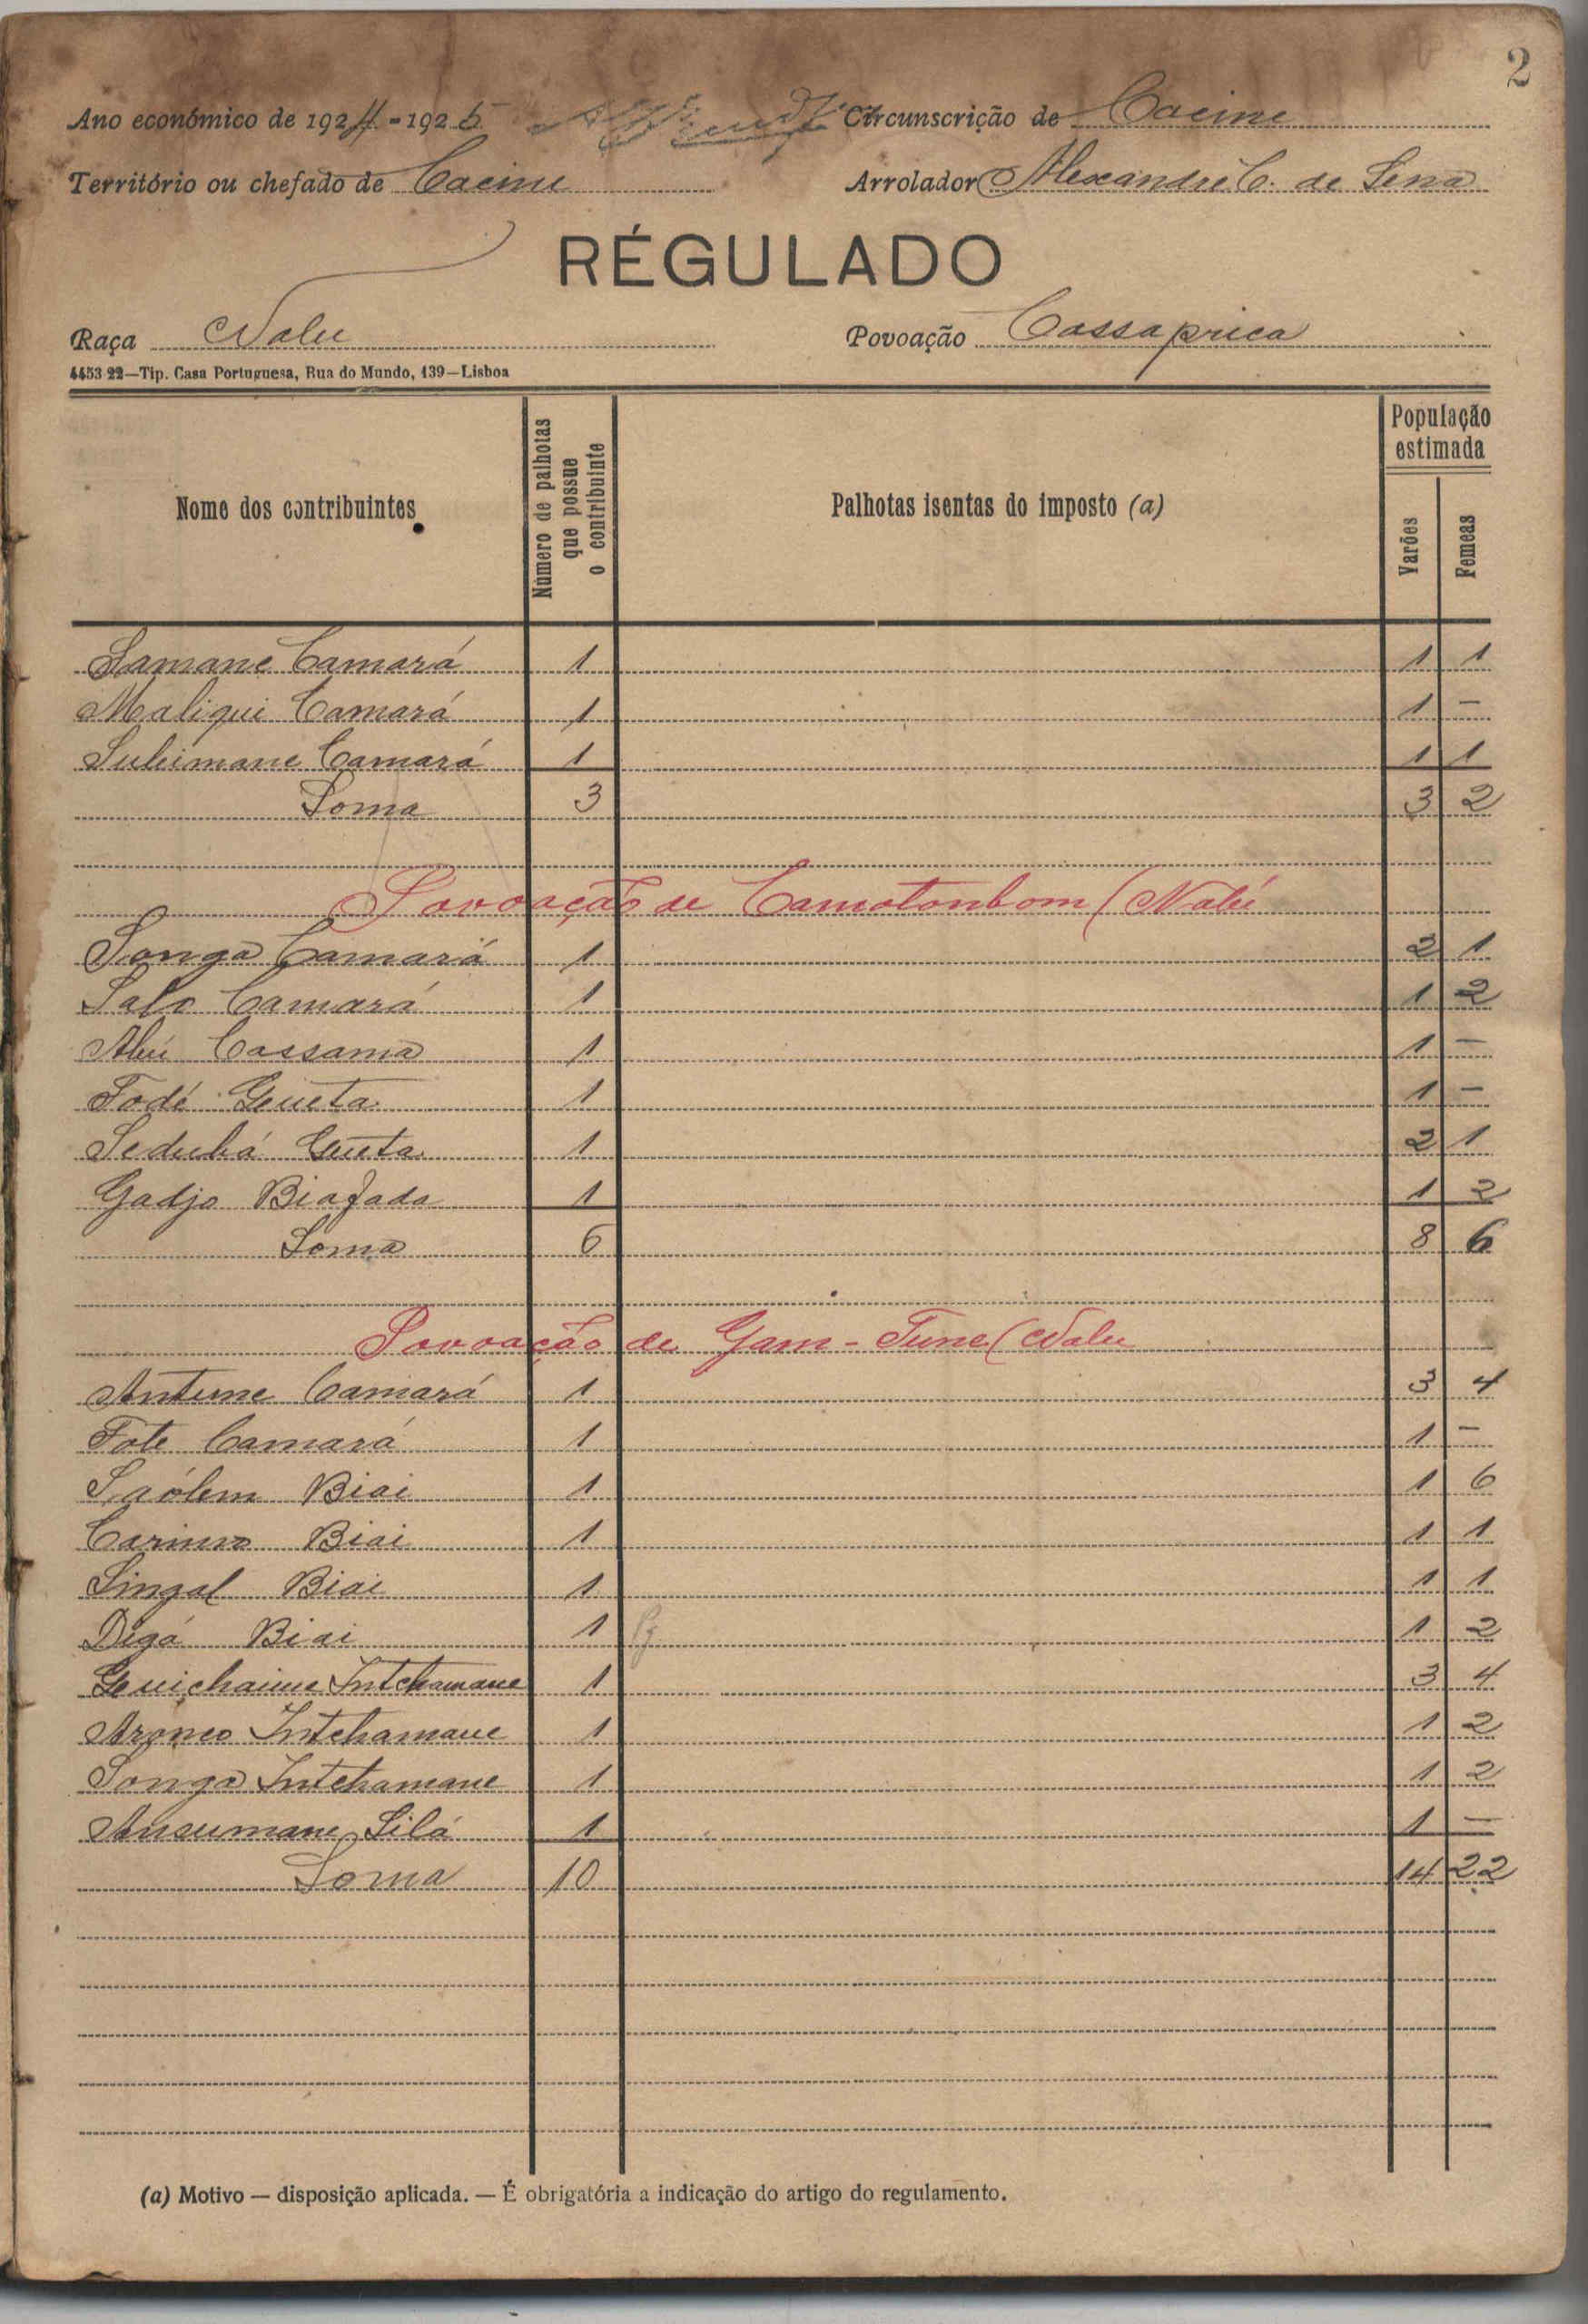 2
Ano económico de 1924-1925 Circunscrição de Cacine
Território ou chefado de Cacine Arrolador Alexandre C. de Sena
RÉGULADO
Raça Nalu Povoação Cassaprica
4453 22—Tip. Casa Portuguesa, Rua do Mundo, 139—Lisboa
Nome dos contribuintes Número de palhotas que possue o contribuinte Palhotas isentas do imposto (a) População estimada Varões Femeas
Lamane Camará 1 1 1
Maliqui Camará 1 1 —
Suleimane Camará 1 1 1
Soma 3 3 2
Povoação de Camotonbom (Nalú
Songa Camará 1 2 1
Salo Camará 1 1 2
Abú Cassama 1 1 —
Fodé Gueta 1 1 —
Sedubá Gueta 1 2 1
Gadjo Biafada 1 1 2
Soma 6 8 6
Povoação de Gam-Tune (Nalu
Antune Camará 1 3 4
Fote Camará 1 1 —
Saólem Biai 1 1 6
Carimo Biai 1 1 1
Singal Biai 1 1 1
Digá Biai 1 1 2
Guichaime Intchamane 1 3 4
Aroneo Intchamane 1 1 2
Songa Intchamane 1 1 2
Ansumane Silá 1 1 —
Soma 10 14 22
(a) Motivo — disposição aplicada. — É obrigatória a indicação do artigo do regulamento.